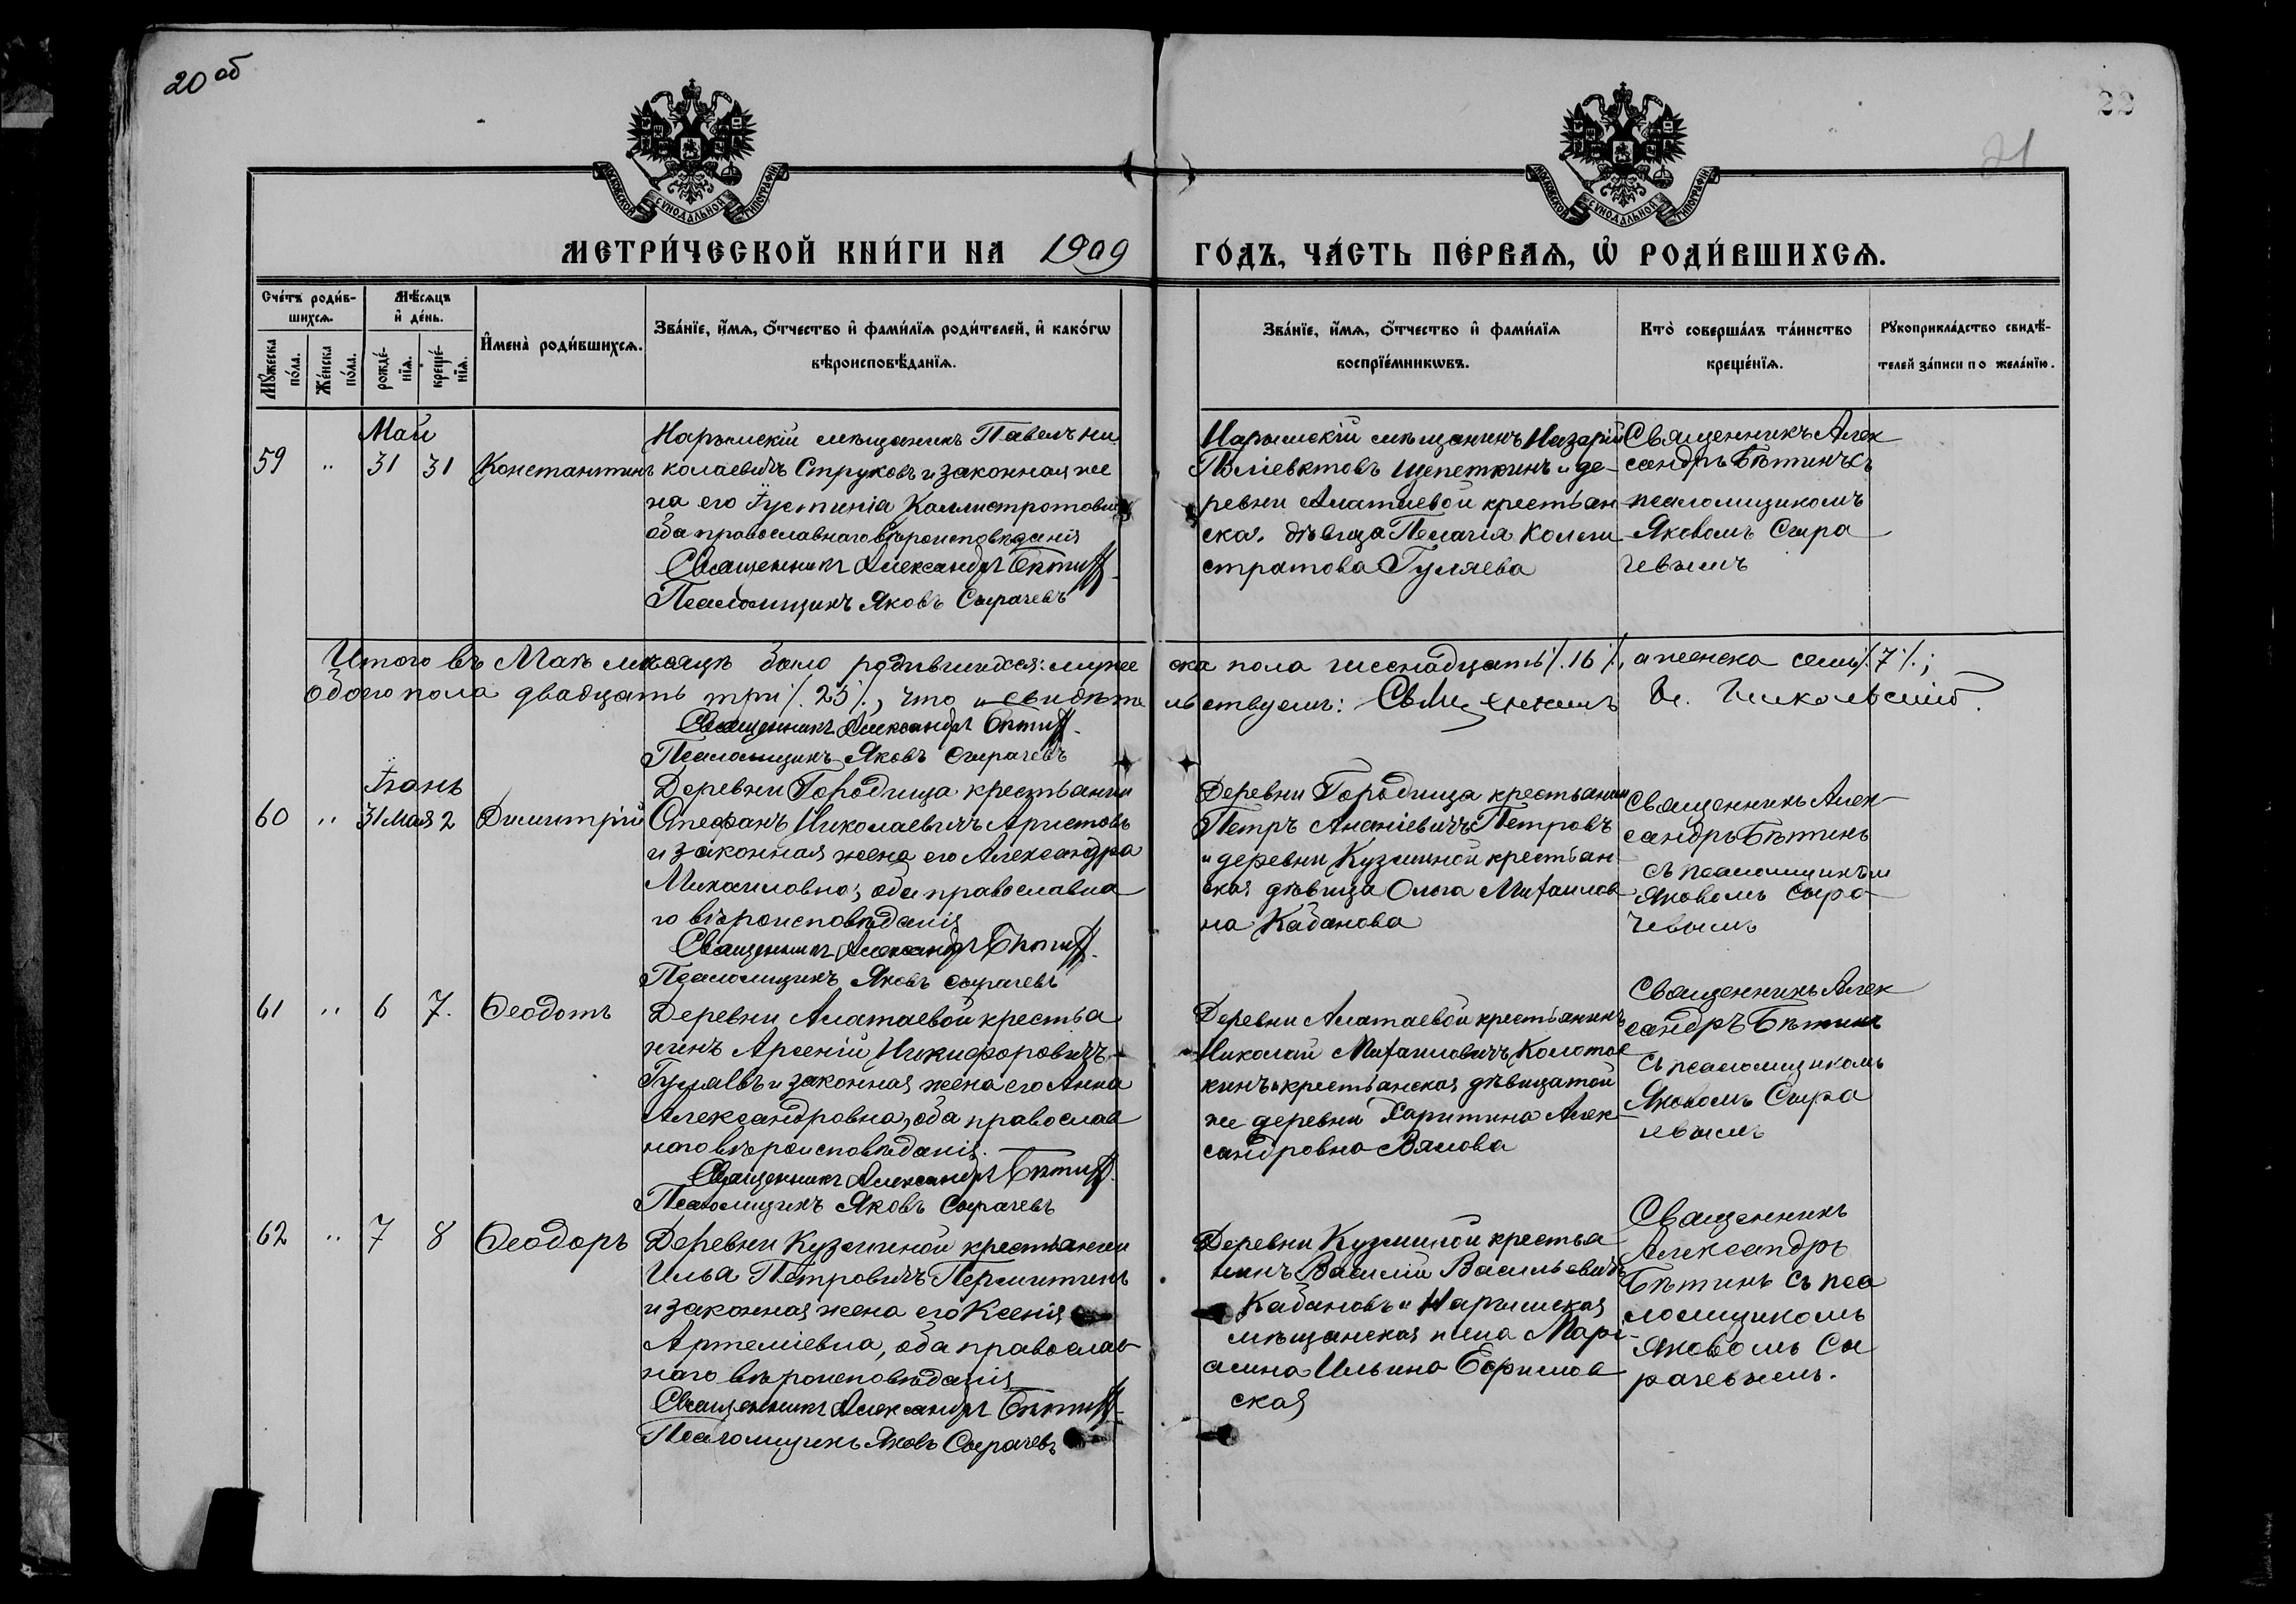 20 об
22
21
МОСКОВСКОЙ СѴНОДАЛЬНОЙ ТИПОГРАФІИ
МОСКОВСКОЙ СѴНОДАЛЬНОЙ ТИПОГРАФІИ
МЕТРИ́ЧЕСКОЙ КНИ́ГИ НА 1909 ГО́ДЪ, ЧА́СТЬ ПЕ́РВАѦ, Ѽ РОДИ́ВШИХСѦ.
Сче́тъ роди́в-
шихсѧ.
Мꙋ́жеска по́ла.
Же́нска по́ла.
Мѣ́сѧцъ
и҆ де́нь.
рожде́-
нїѧ.
креще́-
нїѧ.
И҆мена̀ роди́вшихсѧ.
Зва́нїе, и҆́мѧ, ѻ҆́тчество и҆ фами́лїѧ роди́телей, и҆ како́гѡ
вѣроисповѣ́данїѧ.
Зва́нїе, и҆́мѧ, ѻ҆́тчество и҆ фами́лїѧ
воспрїе́мникѡвъ.
Кто̀ соверша́лъ та́инство
креще́нїѧ.
Рꙋкоприкла́дство свидѣ́-
телей за́писи по жела́нїю.
Май
59 " 31 31 Константинъ
Нарымскій мѣщанинъ Павелъ Ни
колаевичъ Струковъ и законная же
на его Іустинія Каллистратовна
оба православнаго вѣроисповѣданія
Священникъ Александръ Бѣтинъ
Псаломщикъ Яковъ Сырачевъ
Нарымскій мѣщанинъ Назарій
Щепеткинъ и де-
ревни Алатаевой крестьян
ская дѣвица Пелагія Калли
стратова Гуляева
Священникъ Алек
сандръ Бѣтинъ съ
псаломщикомъ
Яковомъ Сыра
чевымъ
Итого въ Маѣ мѣсяцѣ было родившихся: муже
ска пола шеснадцать /.16./, а женска семь /.7./;
обоего пола двадцать три /.23./, что и свидѣте
льствуемъ: Священникъ И. Никольскій
Священникъ Александръ Бѣтинъ
Псаломщикъ Яковъ Сырачевъ
Іюнь
60 " 31 мая 2 Димитрій
Деревни Городища крестьянин
Стефанъ Николаевичъ Аристовъ
и законная жена его Александра
Михаиловна, оба православна
го вѣроисповѣданія
Священникъ Александръ Бѣтинъ
Псаломщикъ Яковъ Сырачевъ
Деревни Городища крестьянин
Петръ Ананіевичъ Петровъ
и деревни Кузминой крестьян-
ская дѣвица Ольга Михаилов
на Кабанова
Священникъ Алек-
сандръ Бѣтинъ
съ псаломщикомъ
Яковомъ Сыра-
чевымъ
61 " 6 7. Ѳеодотъ
Деревни Алатаевой крестья
нинъ Арсеній Никифоровичъ
Гуляевъ и законная жена его Анна
Александровна, оба православ
наго вѣроисповѣданія.
Священникъ Александръ Бѣтинъ
Псаломщикъ Яковъ Сырачевъ
Деревни Алатаевой крестьянинъ
Николай Михаиловичъ Колотов
кинъ и крестьянская дѣвица той
же деревни Харитина Алек-
сандровна Вялова
Священникъ Алек
сандръ Бѣтинъ
съ псаломщикомъ
Яковомъ Сыра
чевымъ
62 " 7 8 Ѳеодоръ
Деревни Кузминой крестьянин
Илья Петровичъ Пермитинъ
и законная жена его Ксенія
Артеміевна, оба православ-
наго вѣроисповѣданія
Священникъ Александръ Бѣтинъ
Псаломщикъ Яковъ Сырачевъ
Деревни Кузминой крестья
нинъ Василій Васильевичъ
Кабановъ и Нарымская
мѣщанская жена Марі-
амна Ильина Ефимов
ская
Священникъ
Александръ
Бѣтинъ съ пса
ломщикомъ
Яковомъ Сы
рачевымъ.